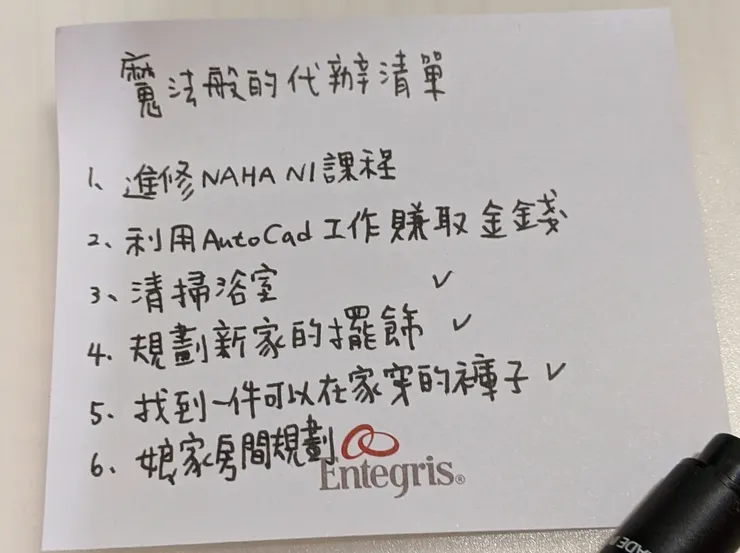 魔法般的代辦清單
1、進修NAHA N1課程
2、利用AutoCad工作賺取金錢
3、清掃浴室 ✓
4、規劃新家的擺飾 ✓
5、找到一件可以在家穿的褲子 ✓
6、娘家房間規劃
Entegris®
ADE